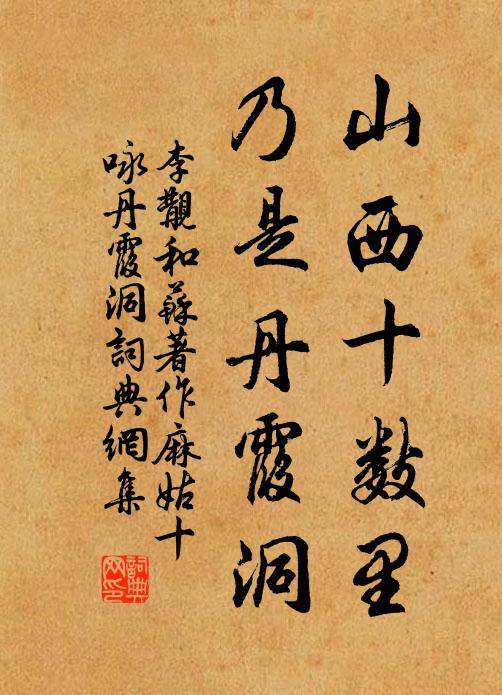 山西十數里
乃是丹霞洞
李覯和蘇著作麻姑十
咏丹霞洞詞典網集
詞典
网印